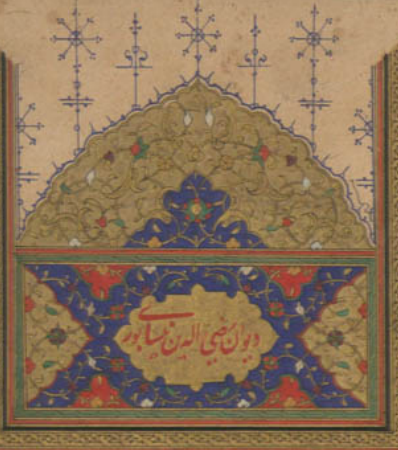 دیوان رضی الدین نیسابوری